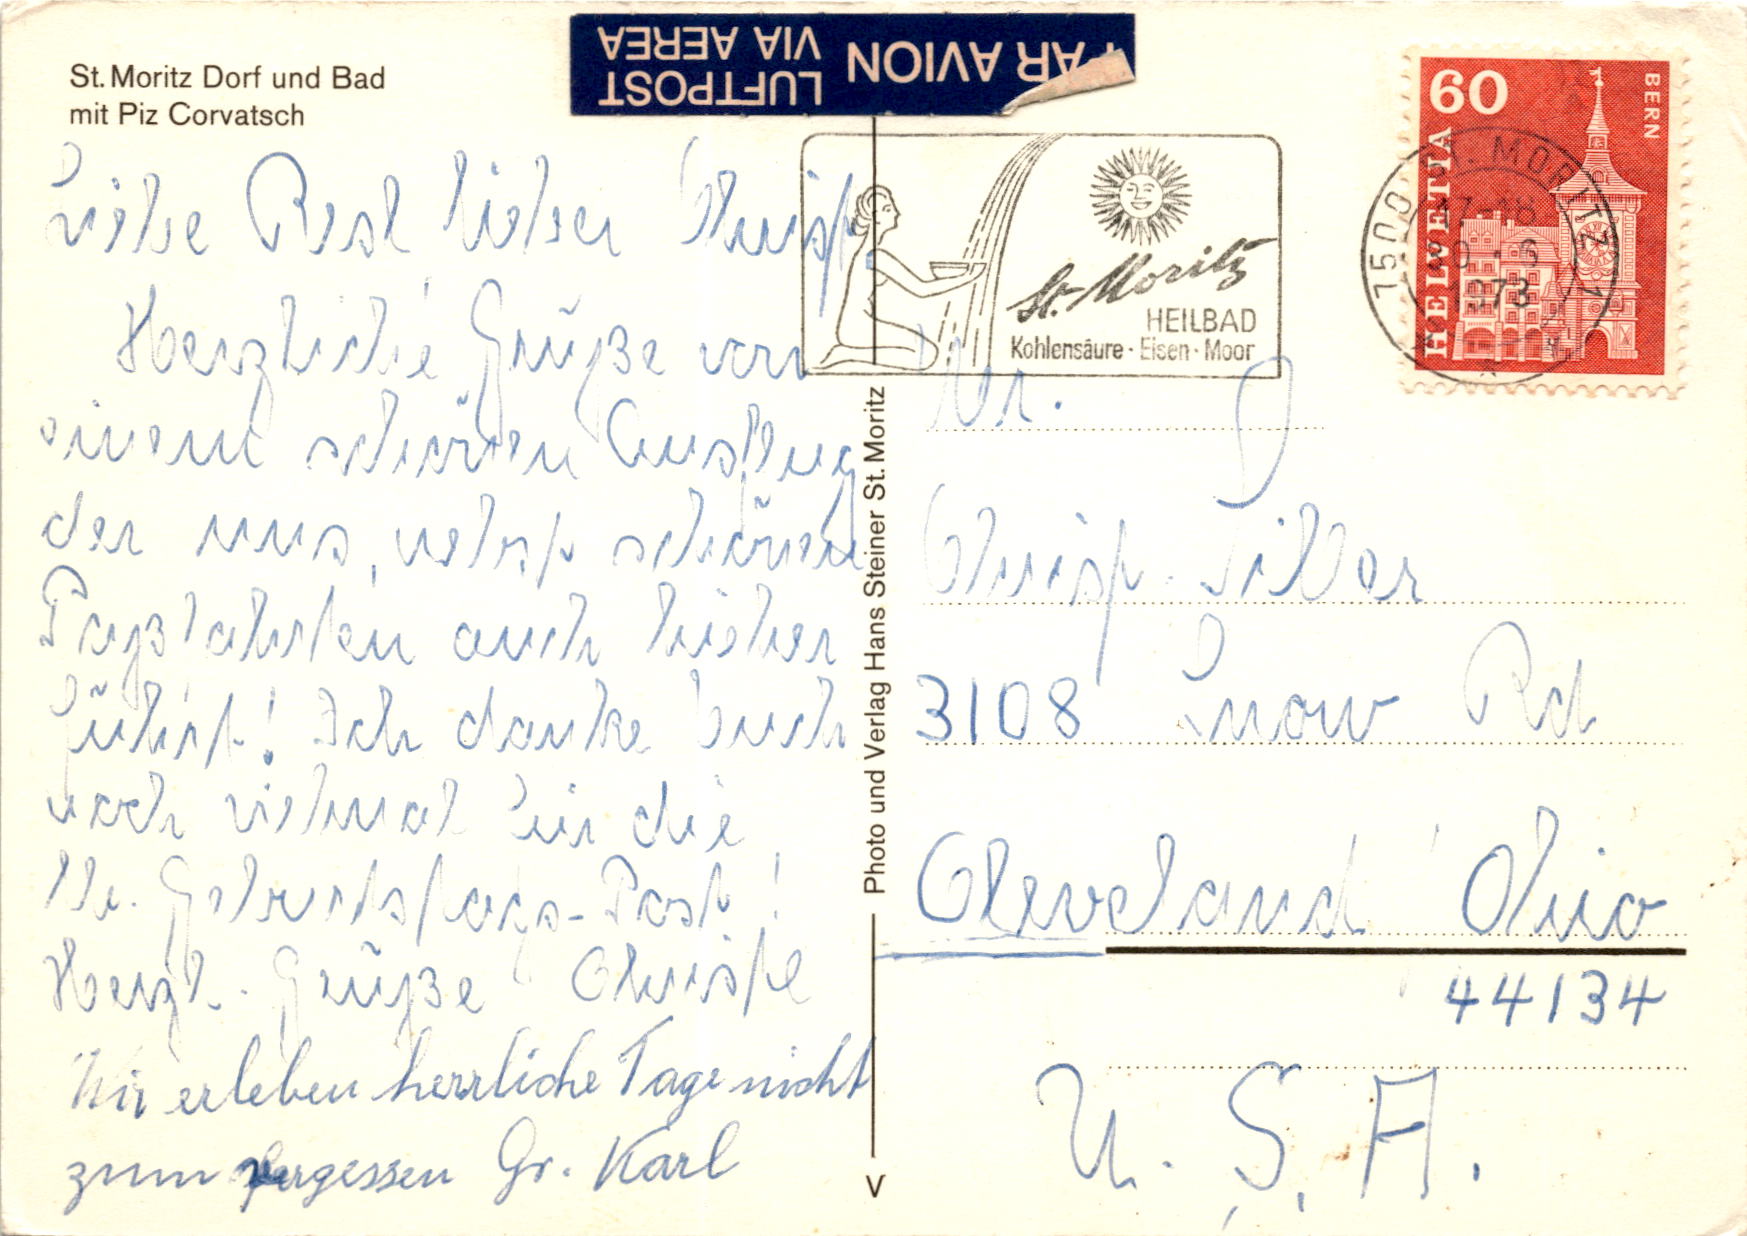 St. Moritz Dorf und Bad
mit Piz Corvatsch
LUFTPOST
VIA AEREA
PAR AVION
Liebe Resl lieber Christ,
Herzliche Grüße von
einem schönen Ausflug
der uns, nebst schönen
Paßfahrten auch hieher
führt! Ich danke Euch
noch vielmal für die
lb. Geburtstags-Post!
Herzl. Grüße Christl
Wir erleben herrliche Tage nicht
zum vergessen Gr. Karl
Photo und Verlag Hans Steiner St. Moritz
St. Moritz
HEILBAD
Kohlensäure · Eisen · Moor
60
BERN
HELVETIA
7500 ST. MORITZ 1
17-18
Mr.
Christ.
3108 Snow Rd
Cleveland Ohio
44134
U. S. A.